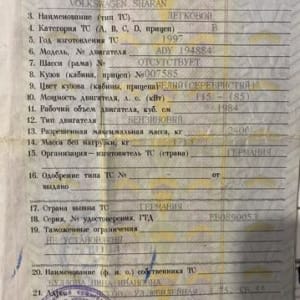 VOLKSWAGEN SHARAN
3. Наименование (тип ТС) ЛЕГКОВОЙ
4. Категория ТС (А, В, С, D, прицеп) B
5. Год изготовления ТС 1997
6. Модель, № двигателя ADY 194884
7. Шасси (рама) № ОТСУТСТВУЕТ
8. Кузов (кабина, прицеп) № 007585
9. Цвет кузова (кабины, прицепа)
10. Мощность двигателя, л. с. (кВт) 115 - (85)
11. Рабочий объем двигателя, куб. см 1984
12. Тип двигателя БЕНЗИНОВЫЙ
13. Разрешенная максимальная масса, кг 2400
14. Масса без нагрузки, кг
15. Организация—изготовитель ТС (страна) ГЕРМАНИЯ
16. Одобрение типа ТС № от
выдано
17. Страна вывоза ТС ГЕРМАНИЯ
18. Серия, № удостоверения, ГТД
19. Таможенные ограничения
НЕ УСТАНОВЛЕНЫ
20. Наименование (ф. и. о.) собственника ТС
НИНА ИВАНОВНА
21. Адрес